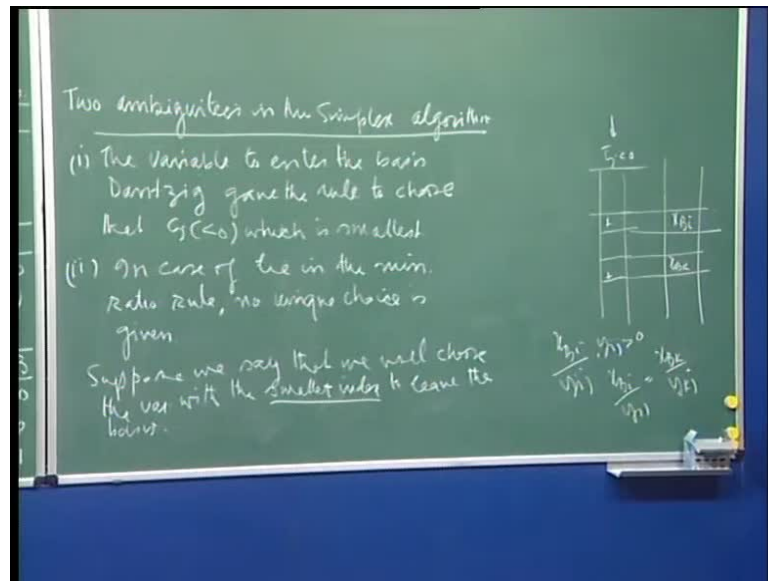 Two ambiguities in the Simplex algorithm
(i) The variable to enter the basis
Dantzig gave the rule to chose
that c̄j (<0) which is smallest
(ii) In case of tie in the min.
Ratio Rule, no unique choice is
given
Suppose we say that we will chose
the var with the smallest index to leave the
basis.
↓
c̄j<0
+ xBi
+ xBk
xBi / yij , yij >0
xBi / yij = xBk / ykj